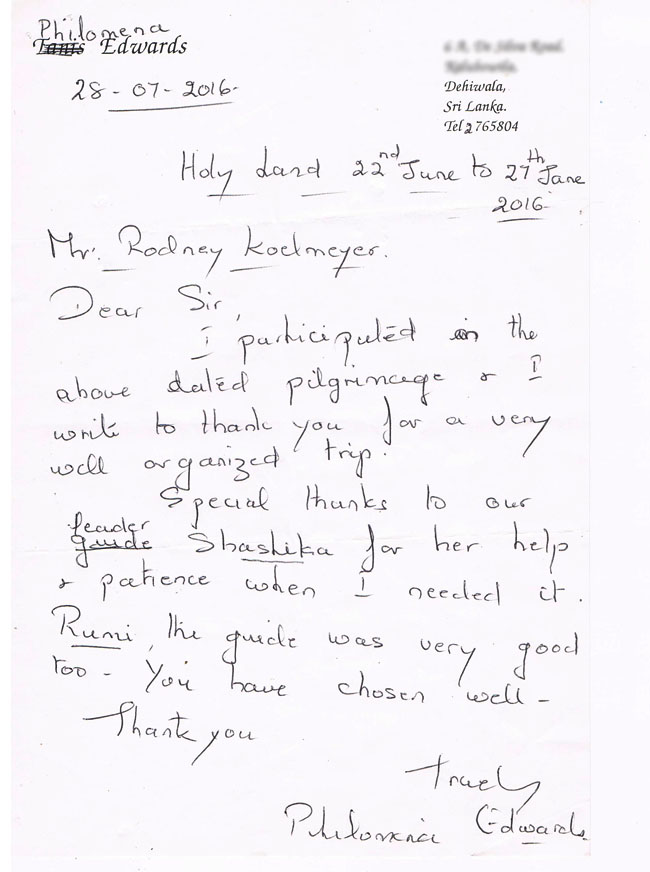 Philomena
Tanis Edwards
28-07-2016-
Dehiwala,
Sri Lanka.
Tel 2765804
Holy Land 22nd June to 27th June
2016-
Mr. Rodney Koelmeyer.
Dear Sir,
I participated in the
above dated pilgrimage & I
write to thank you for a very
well organized trip.
Special thanks to our
leader
guide Shashika for her help
& patience when I needed it.
Rumi, the guide was very good
too - You have chosen well -
Thank you
Truely
Philomena Edwards